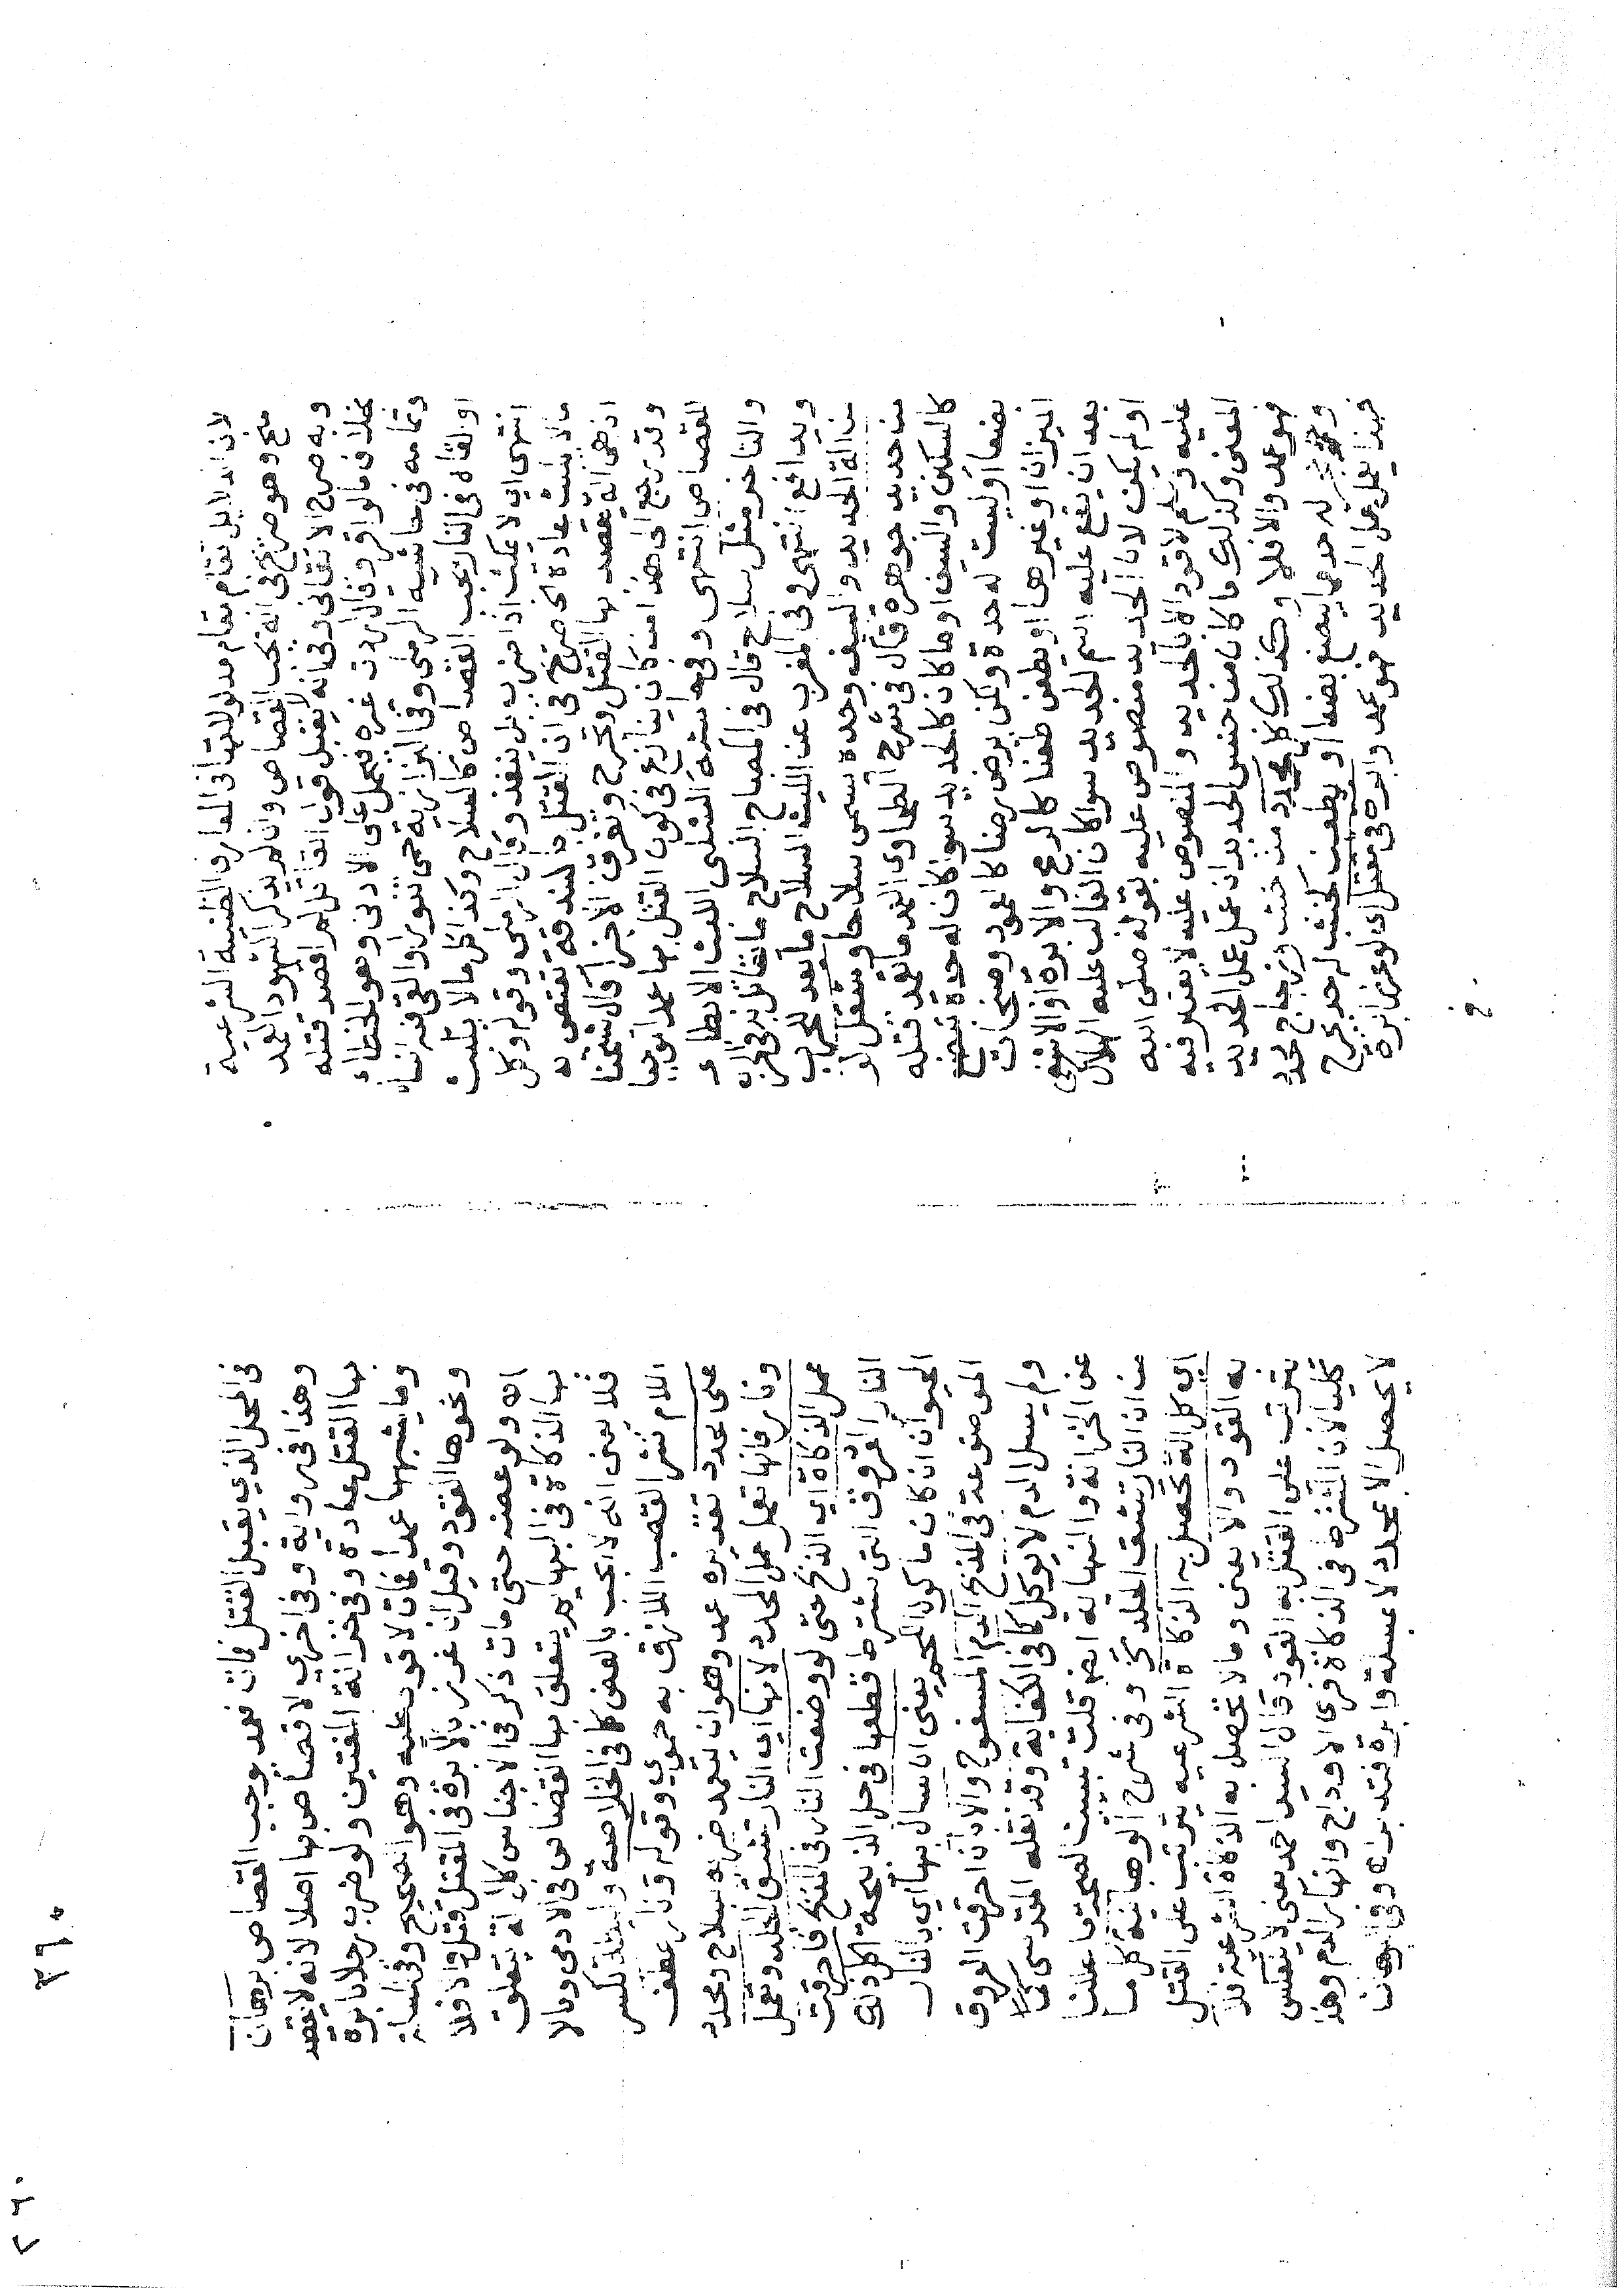 لان الدلايل تقام مقام مدلولاتها فى المعارف الظنية الشرعية
منح وهو صريح فى انه يجب القصاص وان لم يذكر الشهود العمد
وبه صرح الاتقانى وفى انه لا يقبل قول القاتل لم اقصد قتله
بخلاف مالو اقر وقال اردت غيره فيحمل على الادنى وهو الخطاء
وتمامه فى حاشيه الرملى وفى البزازية حمى تنورا والقى فيه انسانا
او القاه فى النار يجب القصاص كالسلاح وكذا كل مالا يلبث
انتهى اى لا يمكث اذا ضرب به بل ينفذ وقال الرملى وقوله وكل
مالا يلبث عادة الخ صريح فى ان القتل بالبندقة يقتص به
اذ هى آلة يقصد بها القتل وتجرح وتفرق الاجزا قال شيخنا
وقد رجع الى هذا من كان ينازع فى كون القتل بها عمدا موجبا
القصاص انتهى وفى حاشية الشلبى اللبث الابطاء
والتاخر مثل سلاح قال فى المصباح السلاح ما يقاتل به فى الحرب
ويدافع انتهى وفى المغرب عن الليث السلاح ما يعد للحرب
من آلة الحديد والسيف وحده يسمى سلاحا ومثقل لو
من حديد جوهرة قال فى شرح الطحاوى العمد ما تعمد قتله
كالسكين والسيف او ما كان كالحديد سوا كان له حدة تبضع
بضعا او ليست له حدة ولكن يرض رضا كالعمود وصنجات
الميزان او غيرها او يطعن طعنا كالرمح والابرة او الاشفى
بعد ان يقع عليه اسم الحديد سوا كان الغالب عليه الهلاك
او لم يكن لان الحديد منصوص عليه بقوله صلى الله
عليه وسلم لا قود الا بالحديد والمنصوص عليه لا يعتبر فيه
المعنى وكذلك ما كان من جنس الحديد ان عمل عمل الحديد
فهو عمد والا فلا وكذلك كل محدد من خشب وزجاج محدد
وحجر له حد مما يبضع بضعا او يطعن كخشب له حد يجرح
فهذا يعمل عمل الحديد فهو عمد وابرة فى مقتل اى لو غرز ابرة
فى المحل الذى يقبل القتل فمات فعمد يوجب القصاص برهان
وهذا فى رواية وفى اخرى لا قصاص بها اصلا لانه لا يقصد
بها القتل عادة وفى خزانة المفتين ولو ضرب رجلا بابرة
وما يشبهها عمدا فمات لا قود عليه وهو الصحيح وفى المسلة
ونحوها القود وقيل ان غرز بالابرة فى المقتل قتل والا فلا
اه ولو عضه حتى مات ذكر فى الاجناس كل آلة يتعلق
بها الذكاة فى البهايم يتعلق بها القصاص فى الادمى ومالا
فلا يعنى انه لا يجب بالعض كما فى الخلاصة وليطة تكسر
اللام قشر القصب اللازق به حموى وقوله ونار عطف
على محدد تقديره عمد وهو ان يتعمد ضربه بسلاح ومحدد
ونار فانها تعمل عمل المحدد لانها اى النار تشق الجلد وتعمل
عمل الذكاة اى الذبح حتى لو وضعت النار فى المذبح فاحرقت
النار العروق التى يشترط قطعها فى حل الذبيحة اكل ذلك
الحيوان ان كان ماكول اللحم يعنى ان سال بها اى بالنار
الموضوعة فى المذبح الدم المسفوح والا بان احرقت العروق
ولم يسل الدم لا يوكل كما فى الكفاية وقد نقله المقدسى كما
عن الخزانة والنهاية ايضا قلت تبين لصحته ما عللنا
من ان النار تشق الجلد الخ وفى شرح الوهبانية كل ما
اى كل آلة تحصل به الذكاة الشرعيه يترتب على القتل
به القود والا يعنى ومالا تحصل به الذكاة الشرعية فلا
يترتب على القتل به القود قال السيد احمد يعنى لا ينعكس
كليا لان الشرط فى الذكاة فرى الاوداج وانهار الدم وهذا
لا يحصل الا بمحدد لا بمسلة وابرة فتدبر اه وفى البرهان
٣٦٠
٢٦٠